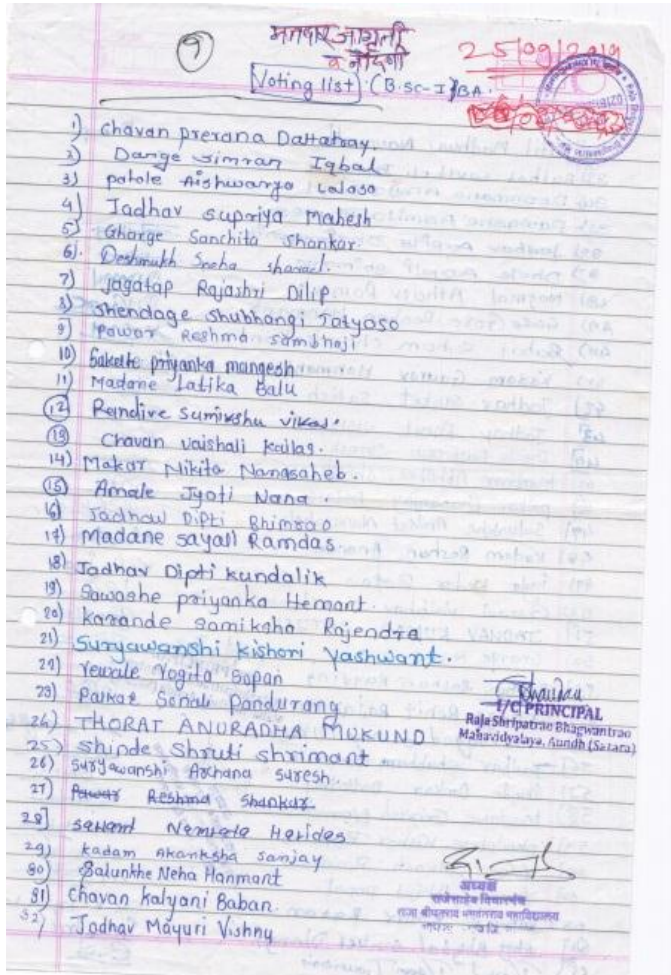 9
मतदार जागृती
व नोंदणी
25/09/2019
Voting list (B.sc-I) BA.
1) Chavan prerana Dattatray.
2) Darge simran Iqbal
3) patole Aishwarya Lalaso
4) Jadhav supriya Mahesh
5) Gharge Sanchita Shankar.
6). Deshmukh Sneha sharad.
7) jagatap Rajashri Dilip
8) shendage shubhangi Tatyaso
9) Pawar Reshma sambhaji
10) Sakate priyanka mangesh
11) Madane Latika Balu
12) Randive sumikshu vikas.
13) Chavan vaishali kailas.
14) Makar Nikita Nanasaheb.
15) Amale Jyoti Nana
16) Jadhav Dipti Bhimrao
17) Madane sayali Ramdas
18) Jadhav Dipti kundalik
19) Sawashe priyanka Hemant.
20) Karande samiksha Rajendra
21) Suryawanshi kishori Yashwant.
22) Yewale Yogita Sopan
23) Patkar Sonali Pandurang
24) THORAT ANURADHA MUKUND
25) Shinde Shruti shrimant
26) suryawanshi Archana suresh
27) Pawar Reshma Shankar
28] sawant Namrata Haridas
29) kadam Akanksha sanjay
30) Salunkhe Neha Hanmant
31) Chavan kalyani Baban.
32) Jadhav Mayuri Vishnu
I/C PRINCIPAL
Raja Shripatrao Bhagwantrao
Mahavidyalaya, Aundh (Satara)
अध्यक्ष
राजेसाहेब विचारमंच
राजा श्रीपतराव भगवंतराव महाविद्यालय